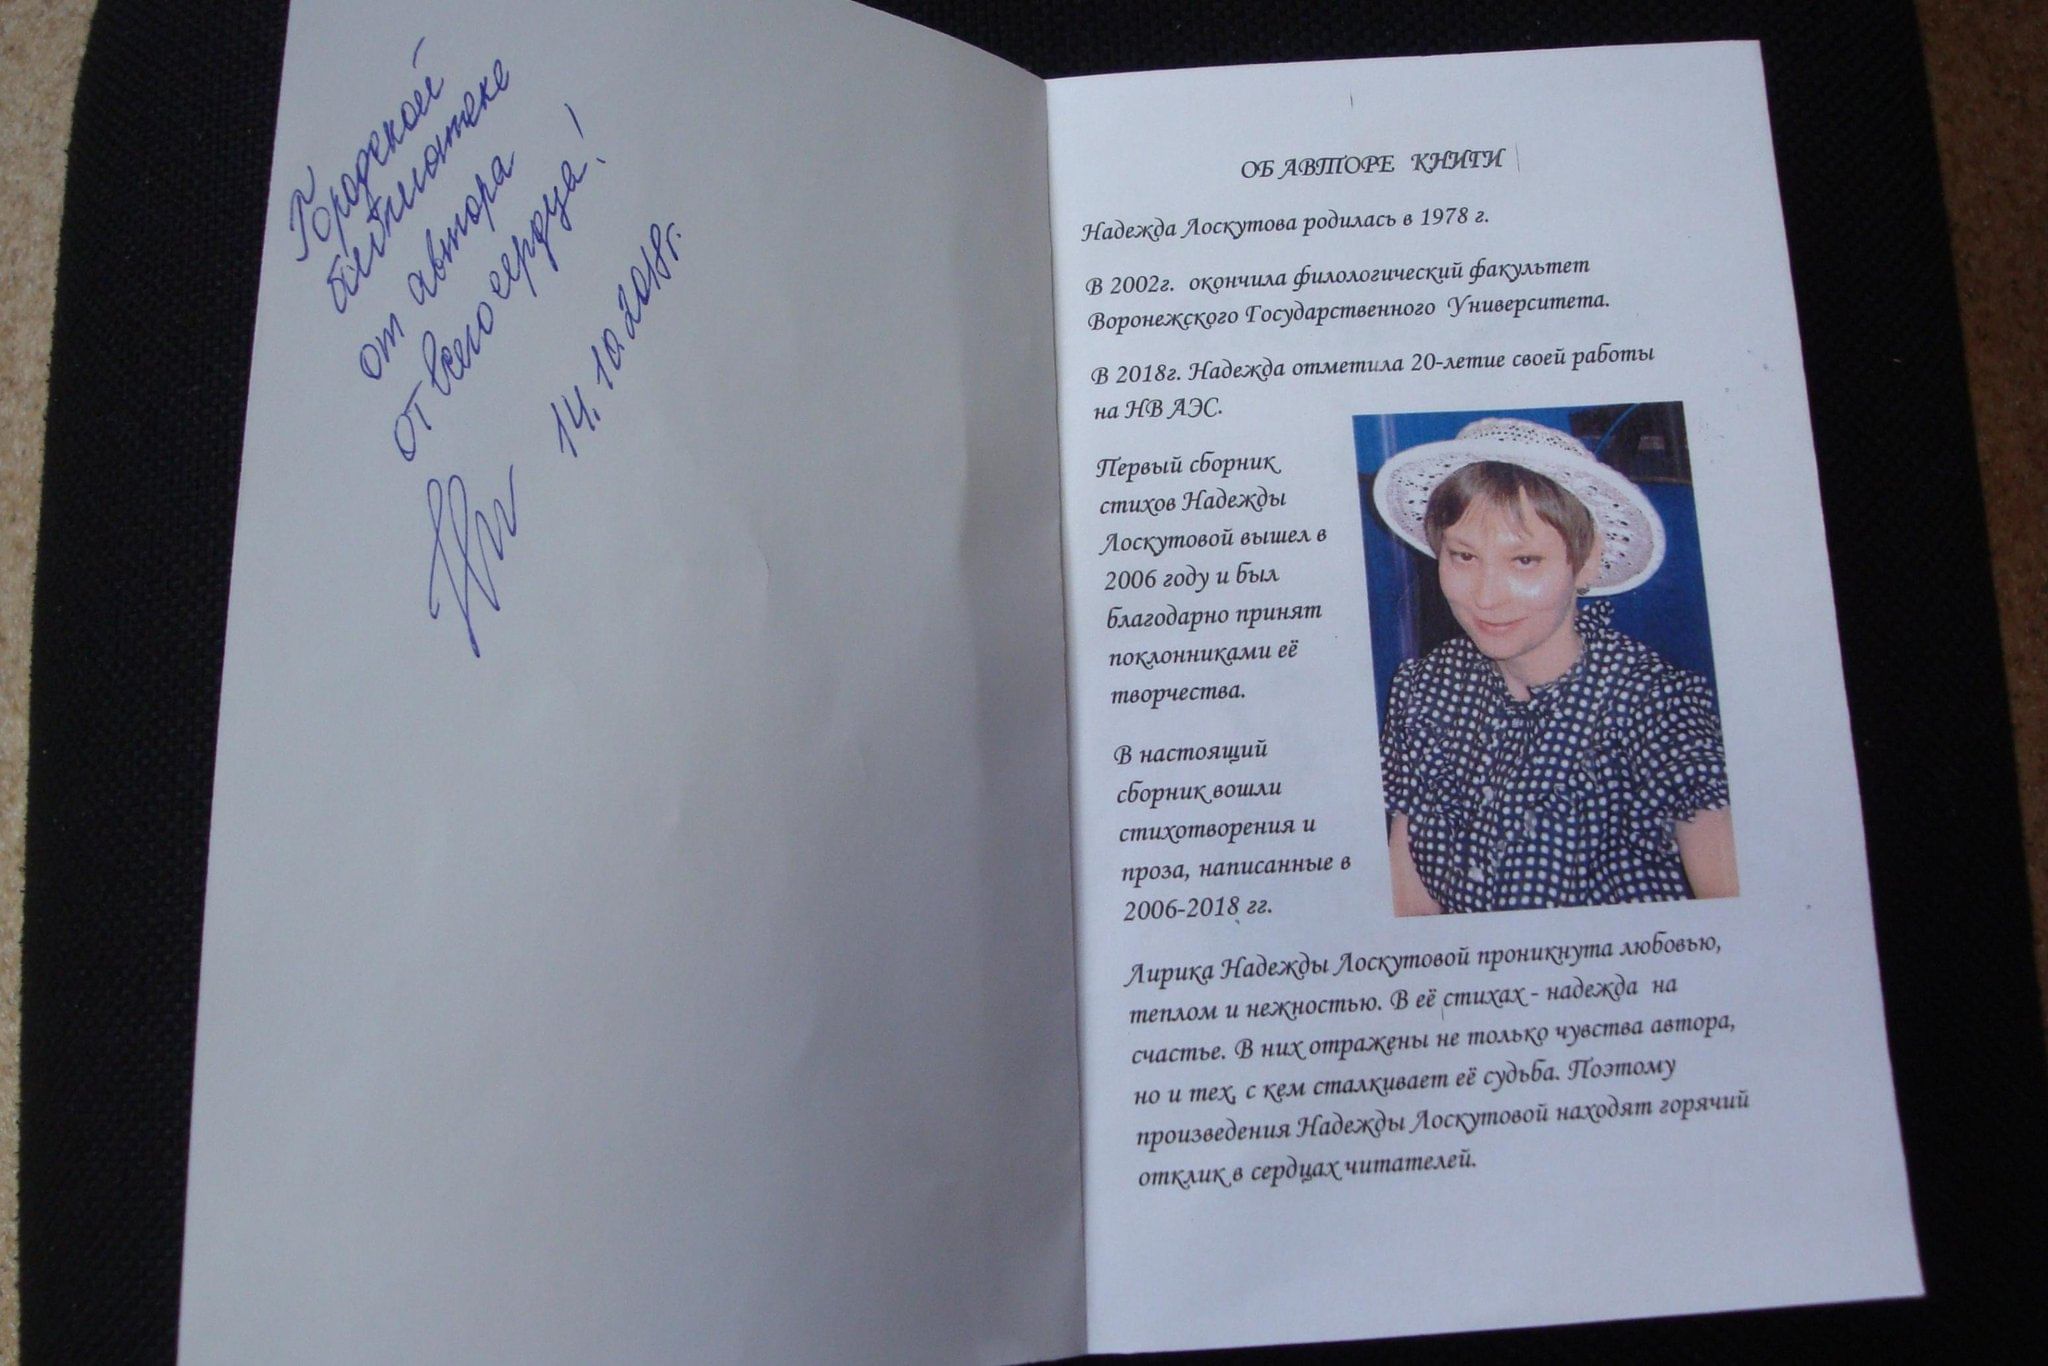 Городской
библиотеке
от автора
от всего сердца!
14.10.2018г.
ОБ АВТОРЕ КНИГИ
Надежда Лоскутова родилась в 1978 г.
В 2002г. окончила филологический факультет
Воронежского Государственного Университета.
В 2018г. Надежда отметила 20-летие своей работы
на НВ АЭС.
Первый сборник
стихов Надежды
Лоскутовой вышел в
2006 году и был
благодарно принят
поклонниками её
творчества.
В настоящий
сборник вошли
стихотворения и
проза, написанные в
2006-2018 гг.
Лирика Надежды Лоскутовой проникнута любовью,
теплом и нежностью. В её стихах - надежда на
счастье. В них отражены не только чувства автора,
но и тех, с кем сталкивает её судьба. Поэтому
произведения Надежды Лоскутовой находят горячий
отклик в сердцах читателей.